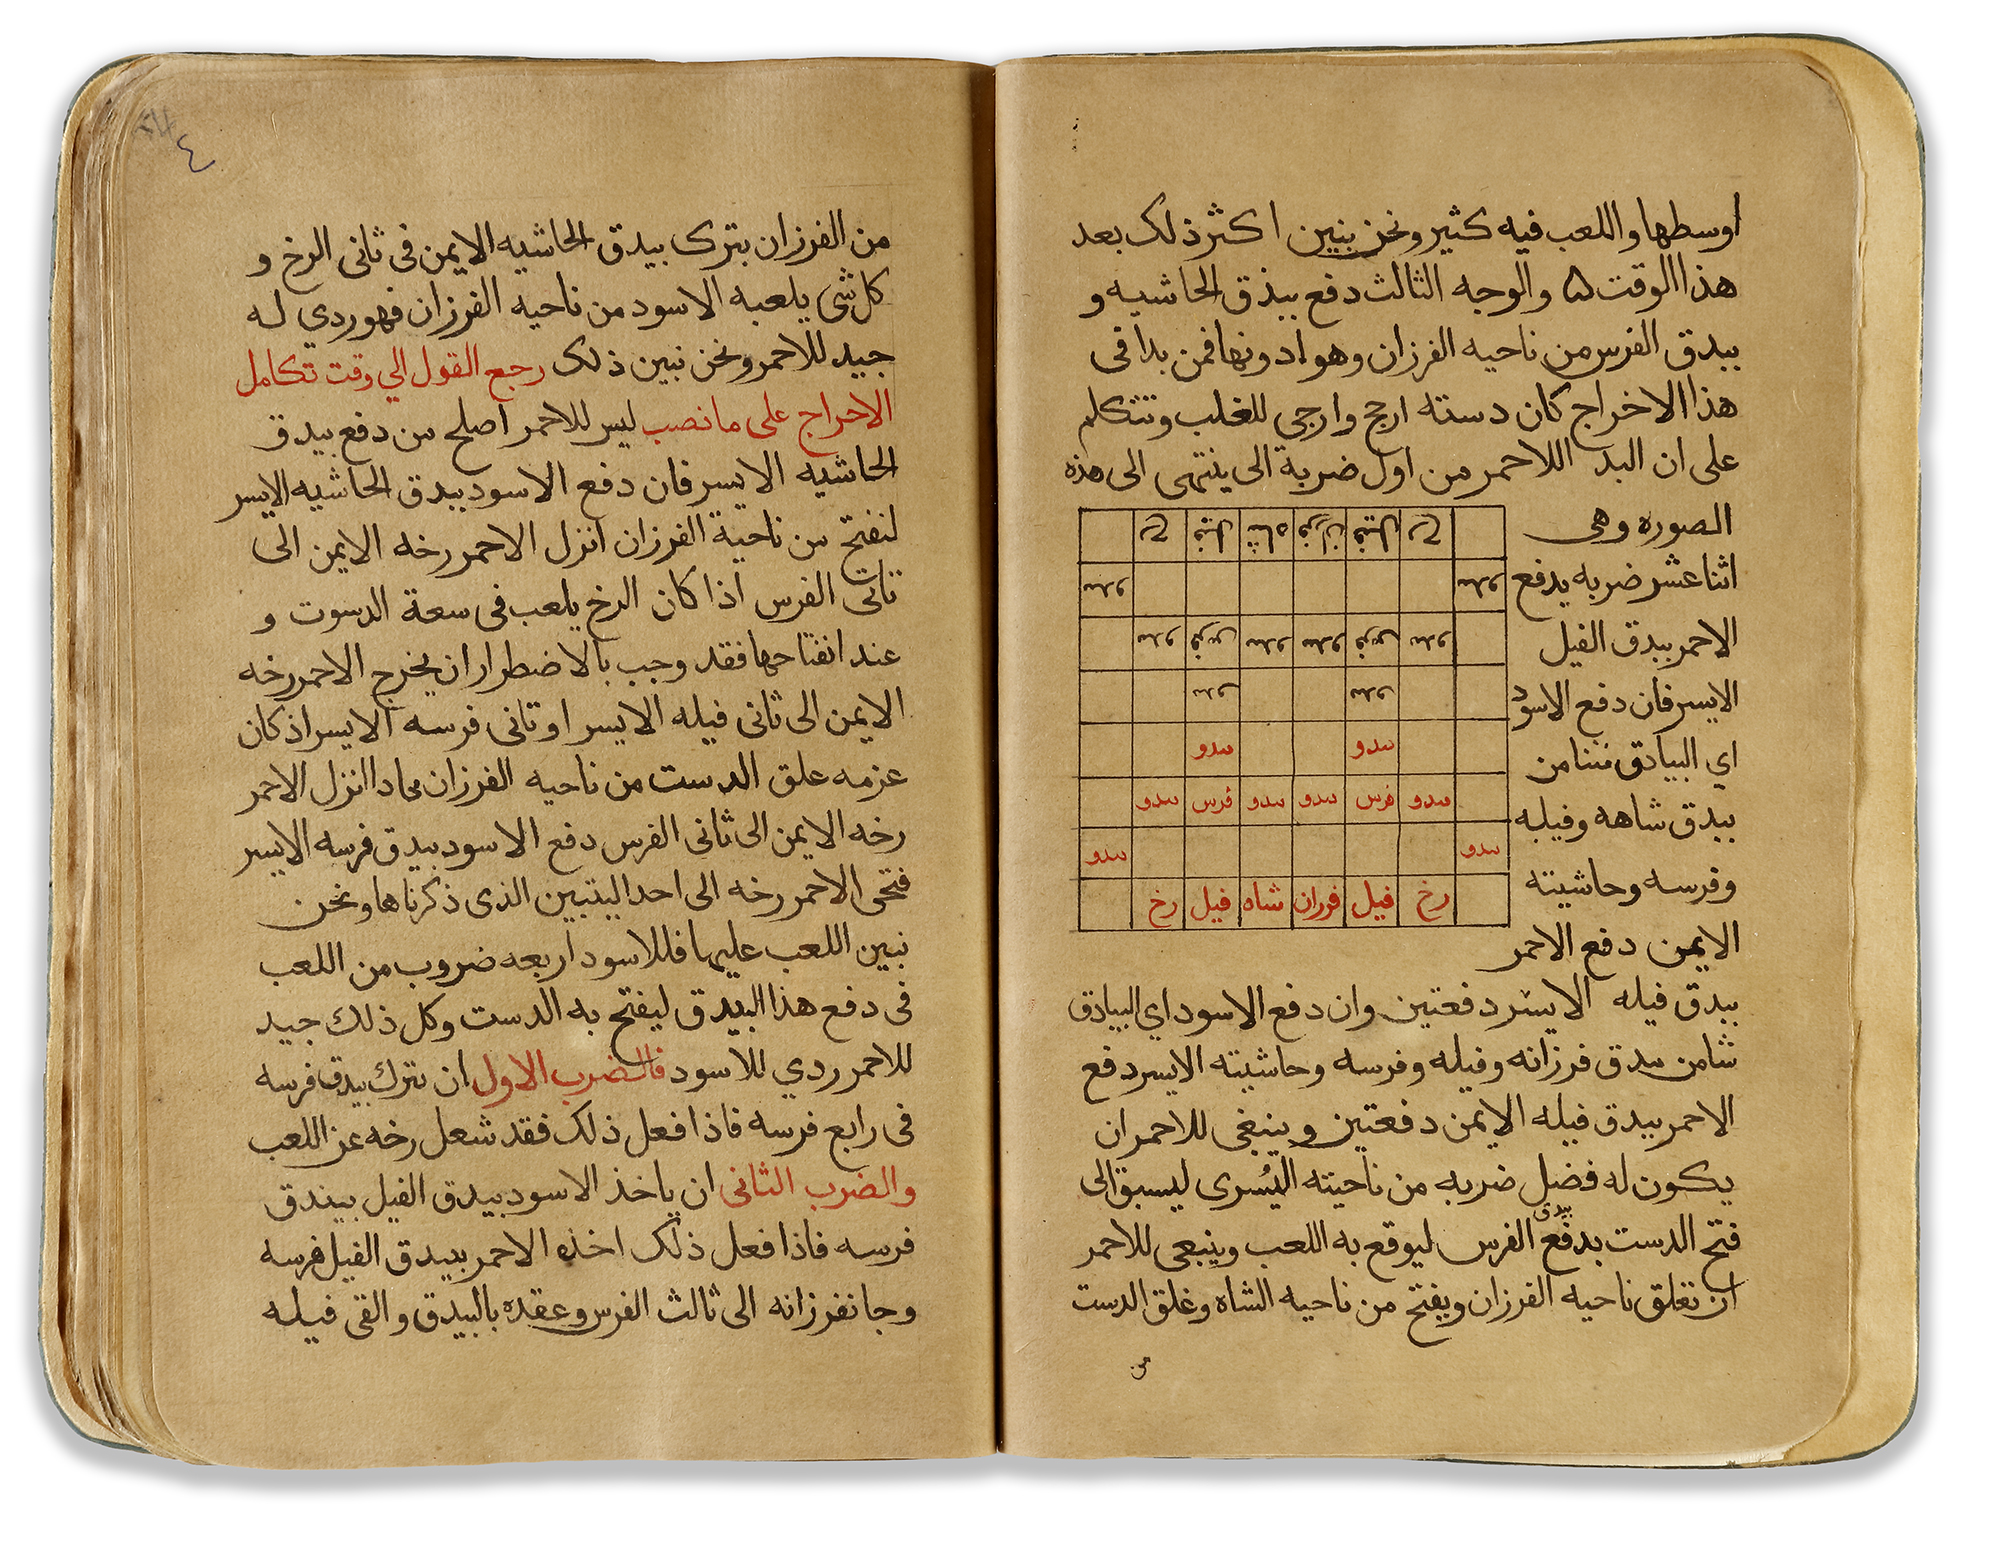 اوسطها واللعب فيه كثير ونحن نبين اكثر ذلك بعد
هذا الوقت ه والوجه الثالث دفع بيذق الحاشيه و
بيدق الفرس من ناحيه الفرزان وهو ادونها فمن بدا فى
هذا الاخراج كان دسته ارجح وارجى للغلب ونتكلم
على ان البد اللاحمر من اول ضربة الى ينتهى الى هذه
الصوره وهى
اثنا عشر ضربه يدفع
الاحمر بيدق الفيل
الايسر فان دفع الاسود
اي البيادق شا من
بيدق شاهه وفيله
وفرسه وحاشيته
الايمن دفع الاحمر
رخ فيل شاه فرزان فيل رخ
بيدق بيدق
بيدق فرس بيدق بيدق فرس بيدق
بيدق بيدق
سدو سدو
سدو فرس سدو سدو فرس سدو
سدو سدو
رخ فيل فرزان شاه فيل رخ
بيدق فيله الايسر دفعتين وان دفع الاسود اي البيادق
شا من بيدق فرزانه وفيله وفرسه وحاشيته الايسر دفع
الاحمر بيدق فيله الايمن دفعتين وينبغى للاحمر ان
يكون له فضل ضربه من ناحيته اليُسرى ليسبق الى
بيدق
فتح الدست بدفع الفرس ليوقع به اللعب وينبغى للاحمر
ان تغلق ناحيه الفرزان ويفتح من ناحيه الشاه وغلق الدست
من
٤
من الفرزان بترك بيدق الحاشيه الايمن فى ثانى الرخ و
كل شى يلعبه الاسود من ناحيه الفرزان فهو ردي له
جيد للاحمر ونحن نبين ذلك رجع القول الي وقت تكامل
الاخراج على ما نصب ليس للاحمر اصلح من دفع بيدق
الحاشيه الايسر فان دفع الاسود بيدق الحاشيه الايسر
لنفتح من ناحية الفرزان انزل الاحمر رخه الايمن الى
ثانى الفرس اذا كان الرخ يلعب فى سعة الدسوت و
عند انفتاحها فقد وجب بالاضطرار ان يخرج الاحمر رخه
الايمن الى ثانى فيله الايسر او ثانى فرسه الايسر اذ كان
عزمه علق الدست من ناحيه الفرزان فاذا انزل الاحمر
رخه الايمن الى ثانى الفرس دفع الاسود بيدق فرسه الايسر
فتحى الاحمر رخه الى احد البيتين الذى ذكرناها ونحن
نبين اللعب عليها فللاسود اربعه ضروب من اللعب
فى دفع هذا البيدق ليفتح به الدست وكل ذلك جيد
للاحمر ردي للاسود فالضرب الاول ان يترك بيدق فرسه
فى رابع فرسه فاذا فعل ذلك فقد شعل رخه عن اللعب
والضرب الثانى ان ياخذ الاسود بيدق الفيل ببيدق
فرسه فاذا فعل ذلك اخذه الاحمر ببيدق الفيل فرسه
وجا نفرزانه الى ثالث الفرس وعقده بالبيدق والقى فيله